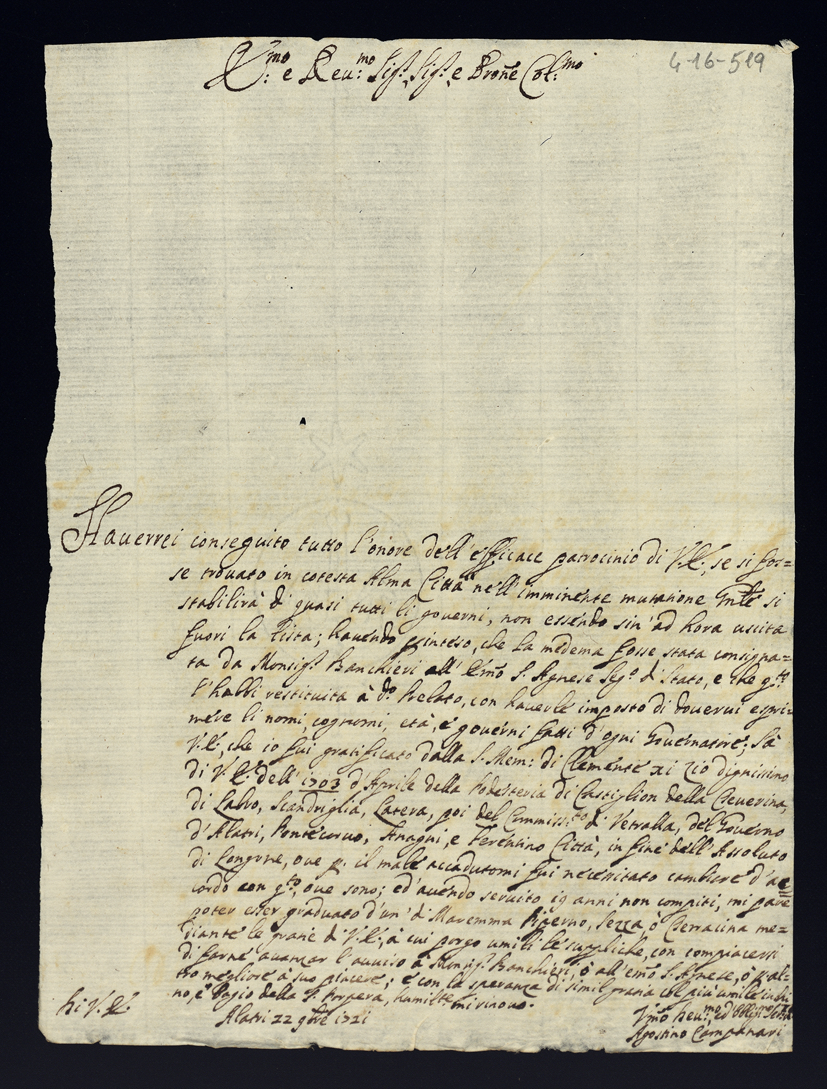 4-16-519
E:mo e Reu:mo Sig.r Sig.r e Prone Col:mo
Hauerrei conseguito tutto l'onore dell'efficace patrocinio di V.E., se si fos=
se trouato in cotesta Alma Città nell'imminente mutatione si
stabilirà di quasi tutti li governi, non essendo sin'ad hora uscita
fuori la lista; hauendo inteso, che la medema fosse stata consigna=
ta da Monsig.r Banchieri all'Em̃o S. Agnese Seg.o di Stato, e che q.to
l'habbi restituita à d.o Prelato, con hauerle imposto di douerui espri=
mere li nomi, cognomi, età, e governi fatti d'ogni Gouernatore; Sà
V.E., che io fui gratificato dalla S. Mem: di Clemente xi Zio dignissimo
di V.E. dell'1703 d'Aprile della Podesteria di Castiglion della Teuerina,
di Saluo, Scandriglia, Latera, poi del Commiss.to di Vetralla, del Gouerno
d'Alatri, Pontecoruo, Anagni, e Ferentino Città, in fine dell'Assoluto
di Longone, oue p. il male accadutomi fui necessitato cambiare d'ac=
cordo con q.to, oue sono; ed'auendo seruito 19 anni non compiti, mi pare
poter esser graduato d'un di Maremma Piperno, Sezza, ò Terracina me=
diante le gratie di V.E., à cui porgo umili le suppliche, con compiacersi
di farne auanzar l'auuiso à Monsig.r Banchieri, ò all'Em̃o S. Agnese, ò
migliore à suo piacere; e con la speranza di simil gratia col più umile
no, e della S. Porpora, humilte mi rinouo.
Di V.E.
Alatri 22 9bre 1721
Agostino Campanari